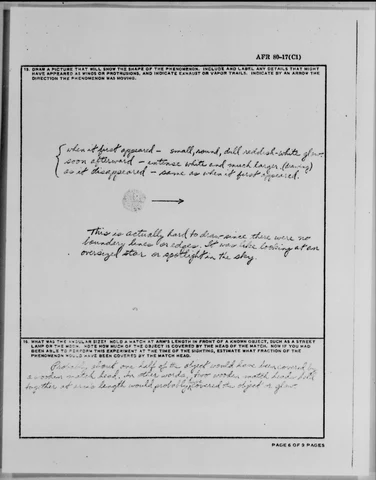 AFR 80-17(C1)
15. DRAW A PICTURE THAT WILL SHOW THE SHAPE OF THE PHENOMENON. INCLUDE AND LABEL ANY DETAILS THAT MIGHT
HAVE APPEARED AS WINGS OR PROTRUSIONS, AND INDICATE EXHAUST OR VAPOR TRAILS. INDICATE BY AN ARROW THE
DIRECTION THE PHENOMENON WAS MOVING.
when it first appeared - small, round, dull reddish-white glow
soon afterward - intense white and much larger
as it disappeared - same as when it first appeared.
This is actually hard to draw since there were no
boundry lines or edges. It was like looking at an
oversized star or spotlight in the sky.
16. WHAT WAS THE ANGULAR SIZE? HOLD A MATCH AT ARM'S LENGTH IN FRONT OF A KNOWN OBJECT, SUCH AS A STREET
LAMP OR THE MOON. NOTE HOW MUCH OF THE OBJECT IS COVERED BY THE HEAD OF THE MATCH. NOW IF YOU HAD
BEEN ABLE TO PERFORM THIS EXPERIMENT AT THE TIME OF THE SIGHTING, ESTIMATE WHAT FRACTION OF THE
PHENOMENON WOULD HAVE BEEN COVERED BY THE MATCH HEAD.
Probably about one half of the object would have been covered by
a wooden match head. In other words, two wooden match heads held
together at arm's length would probably covered the object or glow.
PAGE 6 OF 9 PAGES